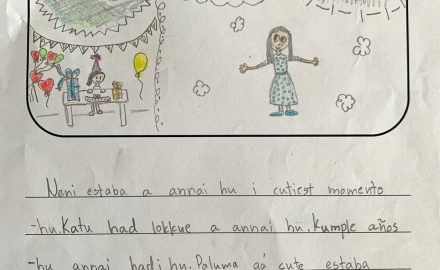 Neni estaba a annai hu i cutiest momento
-hu. Katu had lokkue a annai hu. Kumple años
-hu annai hadi hu. Paluma aá cute estaba